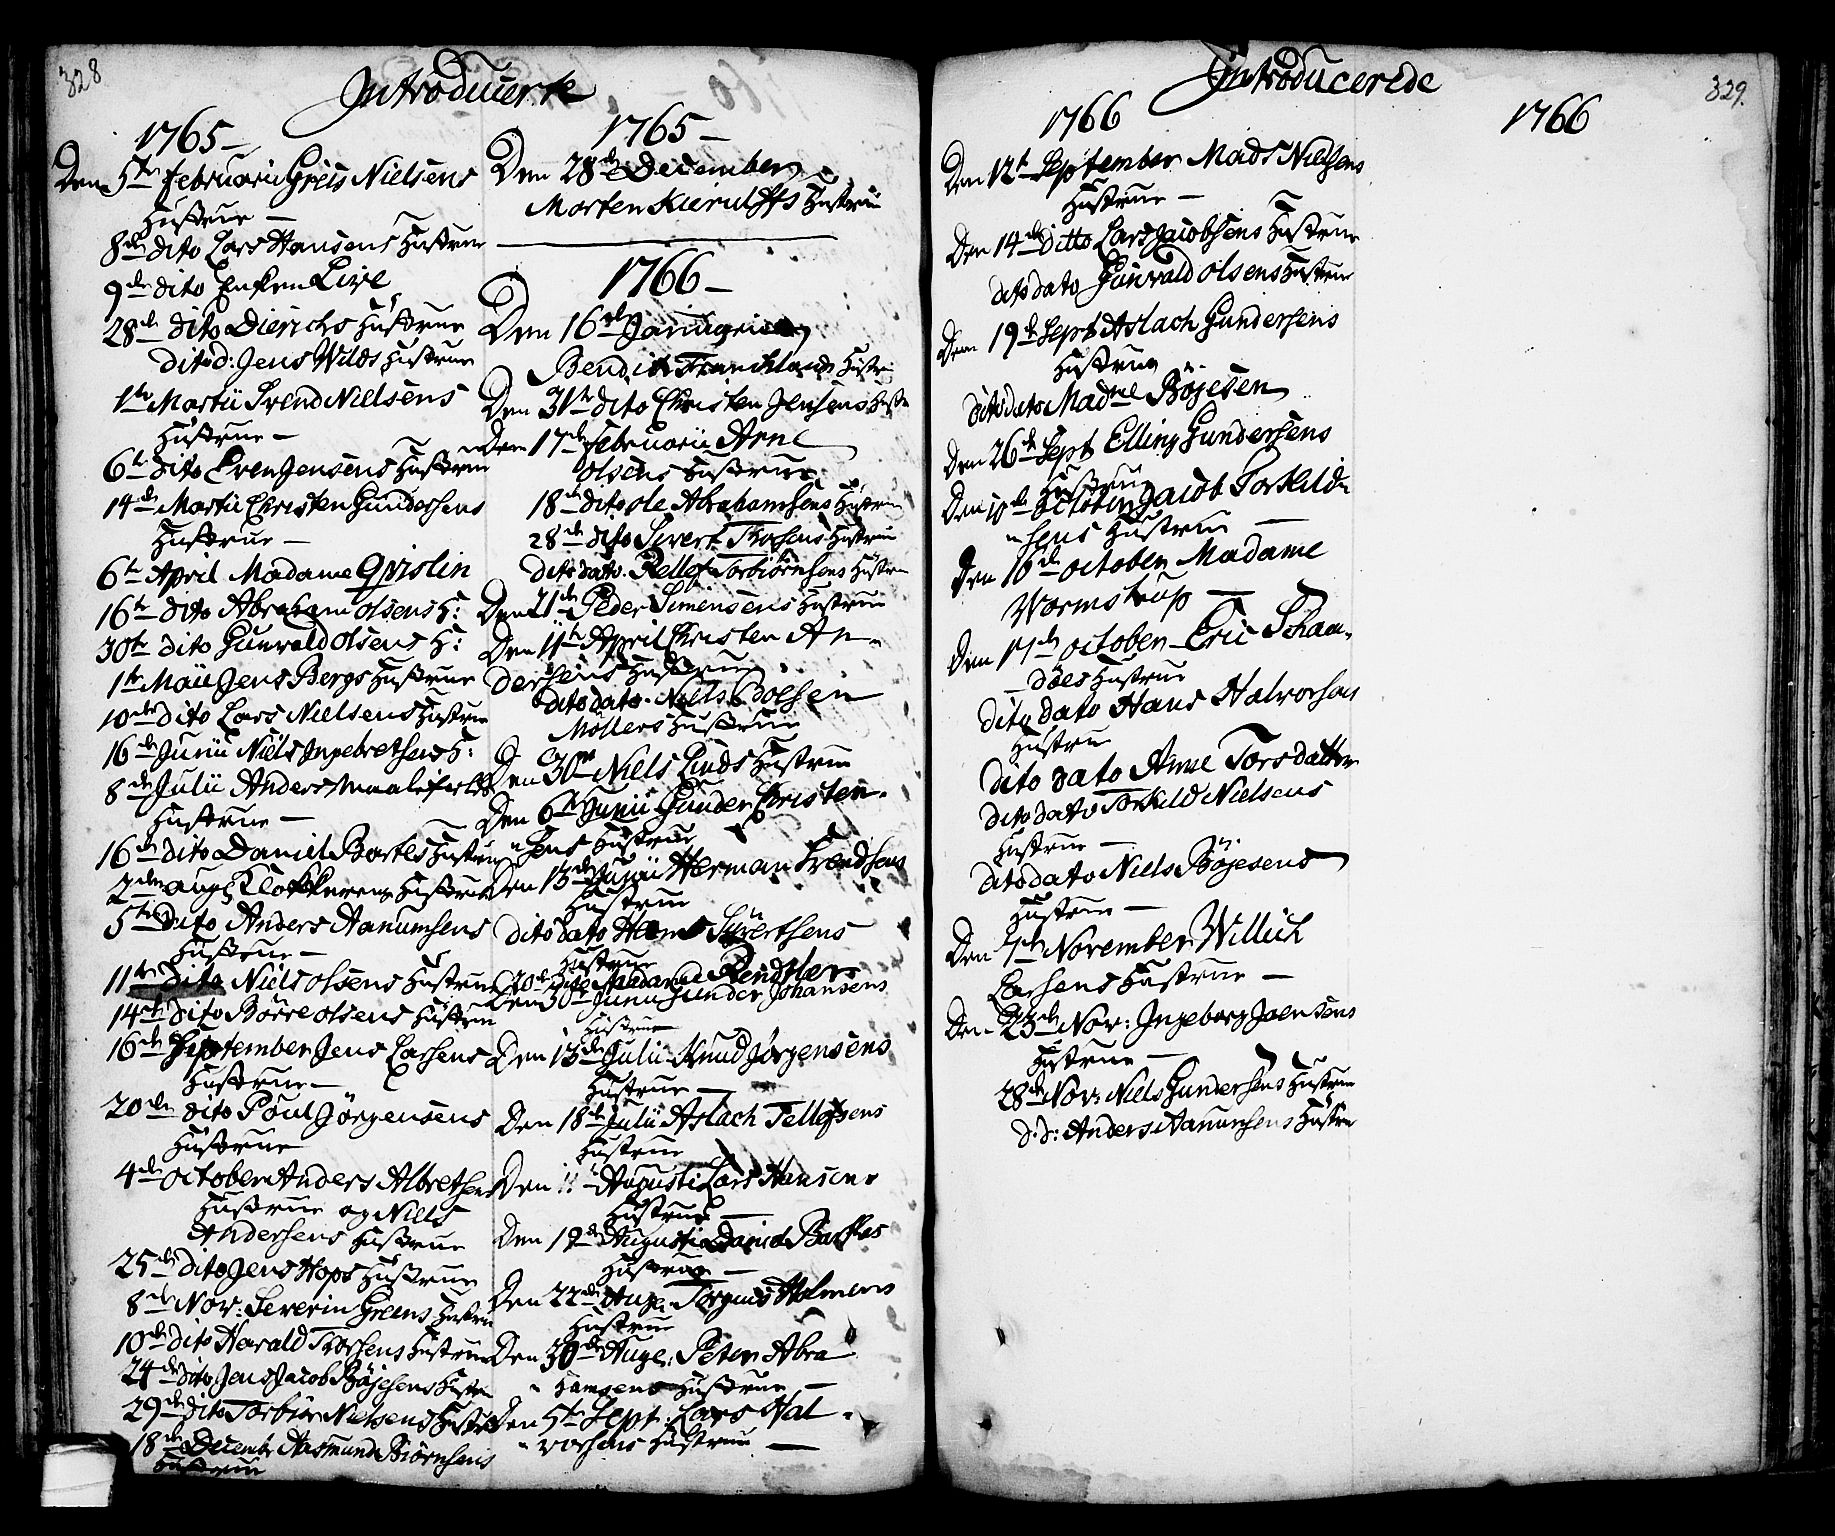 328
Introducerte
1765 –
Den 5te Februarii Greis Nielsens
Hustrue –
8de dito Lars Hansens Hustrue
9de dito Enken Live
28de dito Dierichs Hustrue
dito d: Jens Wilds Hustrue
1te Martii Svend Nielsens
Hustrue –
6te dito Even Jensens Hustrue
14de Martii Christen Gundersens
Hustrue –
6te April Madame Qvislin
16te dito Abraham Olsens H:
30te dito Gunvald Olsens H:
1te Maii Jens Bergs Hustrue
10de dito Lars Nielsens Hustrue
16de Junii Niels Ingebrethsens H:
8de Julii Anders
Hustrue –
16de dito Daniel Bartes Hustrue
2den aug: Klokkerens Hustrue
5te Dito Anders Aanumsens
Hustrue –
11te Dito Niels Olsens Hustrue
14de dito Börre Olsens Hustrue
16de September Jens Larsens
Hustrue –
20de dito Poul Jörgensens
Hustrue
4de October Anders Albretsens
Hustrue og Niels
Andersens Hustrue
25de dito Jens Hops Hustrue
8de Nov: Severin Greens Hustrue
10de dito Harald Thorsens Hustrue
24de dito Jens Jacob Böjesens Hustrue
29de dito Torbiör Nielsens Hustrue
18de Decembr Aasmund Biörnsens
Hustrue
1765 –
Den 28de December
Morten Kierulffs Hustrue
1766 –
Den 16de Januarii
Bendix Hustrue
Den 31te dito Christen Jensens Hustrue
Den 17de Februarii Arne
Olsens Hustrue
18de dito Ole Abrahamsens Hustrue
28de dito Sivert Thorsens Hustrue
dito dato Kellef Torbiörnsens Hustrue
Den 21de Peder Simensens Hustrue
Den 11te April Christen An-
dersens Hustrue
dito dato Niels
Möllers Hustrue
Den 30te Niels Linds Hustrue
Den 6te Junii Gunder Christen-
sens Hustrue
Den 13de Junii Herman Svendsens
Hustrue
dito dato Hans Sivertsens
Hustrue
20de dito Madame Rendtler
Den 30te Junii Gunder Johansens
Hustrue
Den 13de Julii Knud Jörgensens
Hustrue –
Den 18de Julii Aslach Tellefsens
Hustrue
Den 11te Augusti Lars Hansens
Hustrue –
Den 19de Augusti Daniel Bartes
Hustrue –
Den 22de Aug: Torgius Holmens
Hustrue
Den 30de Aug: Peter Abra
hamsens Hustrue –
Den 5te Sept: Lars Hal-
vorsens Hustrue –
Introducerede
329.
1766
1766
Den 12te September Mads Nielsens
Hustrue –
Den 14de Ditto Lars Jacobsens Hustrue
dito dato Gunvald Olsens Hustrue
Den 19de Sept Aslach Gundersens
Hustrue
dito dato Madme Böjesen
Den 26de Sept Elling Gundersens
Hustrue
Den 10de October Jacob Torkild-
sens Hustrue –
Den 16de October Madame
Wormstrup –
Den 17de October Eric Schan-
döes Hustrue
dito dato Hans Halvorsens
Hustrue
dito dato Anne Torsdatter
dito dato Torkild Nielsens
Hustrue –
dito dato Niels Böjesens
Hustrue –
Den 7de November Willich
Larsens Hustrue –
Den 23de Nov: Ingeborg Joensens
Hustrue –
28de Nov: Niels Gundersens Hustrue
d: d: Anders Aanumsens Hustrue